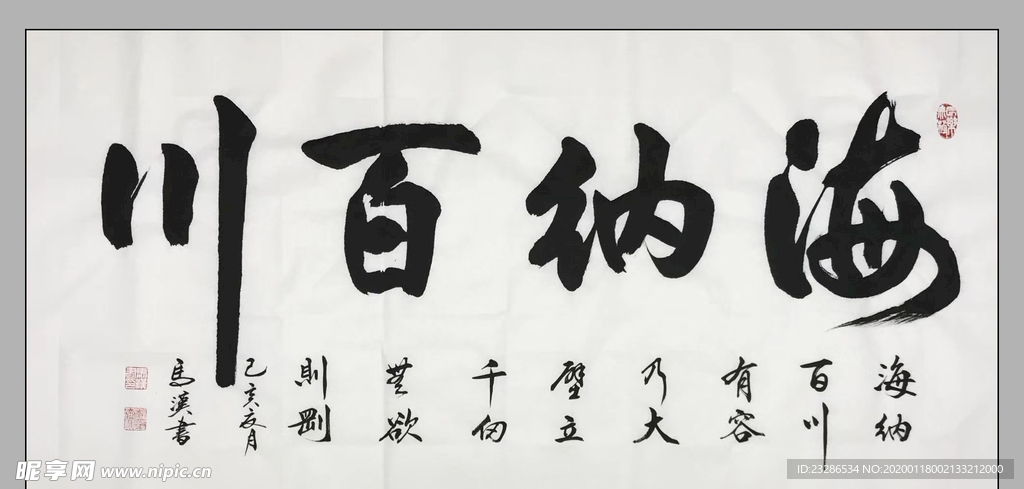 海纳百川
海纳
百川
有容
乃大
壁立
千仞
無欲
則剛
己亥夏月
馬漢書
昵享网 www.nipic.cn
ID:23286534 NO:20200118002133212000